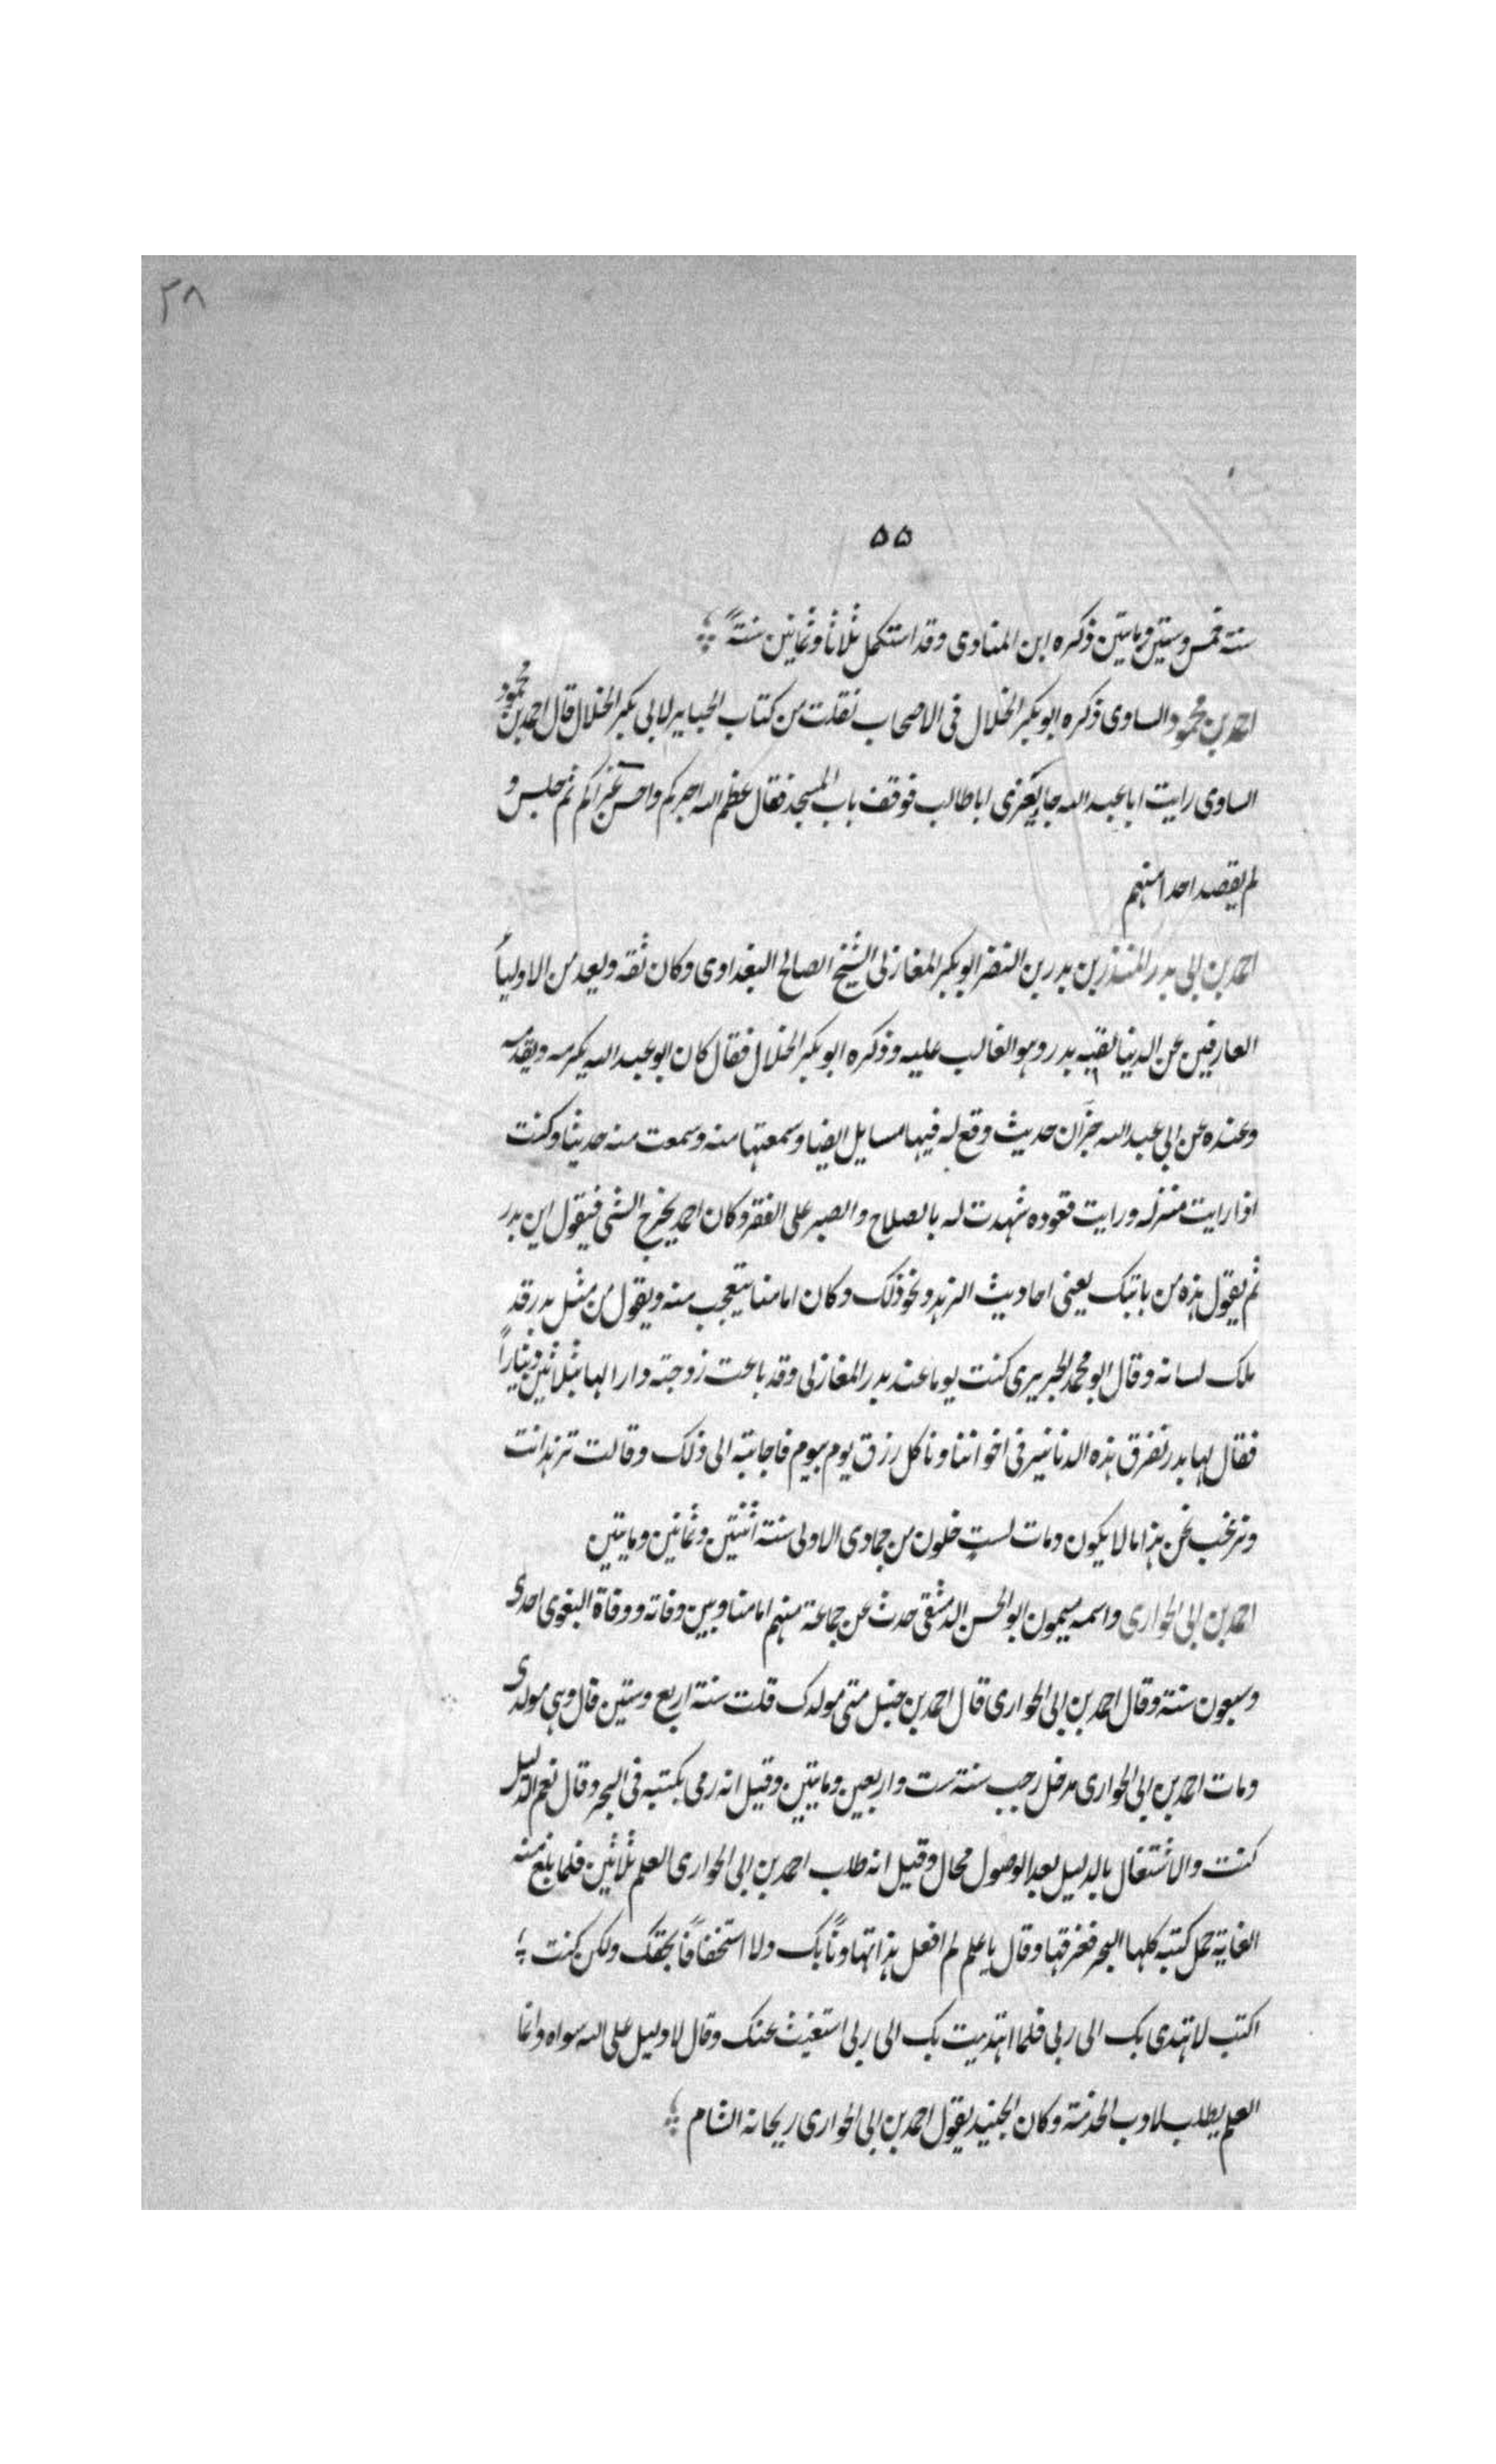 ٢٨
۵۵
سنة خمس وستين ومايتين ذكره ابن المناوى وقد استكمل ثلاثا وثمانين سنةً
احمد بن محمود الساوى ذكره ابو بكر الخلال فى الاصحاب نقلت من كتاب الجنايز لابى بكر الخلال قال احمد بن محمود
الساوى رايت ابا عبد الله جا يعزى ابا طالب فوقف باب المسجد فقال عظم الله اجركم واحسن عزاكم ثم جلس و
لم يقصد احدا منهم
احمد بن ابى بدر المنذر بن بدر بن النضر ابو بكر المغازلى الشيخ الصالح البغداوى وكان ثقه ويعد من الاولياء
العارفين عن الدنيا لقبه بدر وهو الغالب عليه وذكره ابو بكر الخلال فقال كان ابو عبد الله يكرمه ويقدمه
وعنده عن ابى عبد الله جزآن حديث وقع له فيها مسايل ايضا وسمعتها منه وسمعت منه حديثا وكنت
اذا رايت منزله ورايت قعوده شهدت له بالصلاح والصبر على الفقر وكان احمد يخرج الشى فيقول اين بدر
ثم يقول هذه من بابتك يعنى احاديث الزهد ونحو ذلك وكان امامنا يتعجب منه ويقول من مثل بدر قد
ملك لسانه وقال ابو محمد الجريرى كنت يوما عند بدر المغازلى وقد باعت زوجته دارا لها بثلاثين ديناراً
فقال لها بدر نفرق هذه الدنانير فى اخواننا وناكل رزق يوم بيوم فاجابته الى ذلك وقالت تزهد انت
ونرغب نحن هذا ما لا يكون ومات لست خلون من جمادى الاولى سنة اثنتين وثمانين ومايتين
احمد بن ابى الحوارى واسمه ميمون ابو الحسن الدمشقى حدث عن جماعة منهم امامنا وبين وفاته ووفاة البغوى احدى
وسبعون سنة وقال احمد بن ابى الحوارى قال احمد بن حنبل متى مولدك قلت سنة اربع وستين قال وهى مولدى
ومات احمد بن ابى الحوارى مدخل رجب سنة ست واربعين ومايتين وقيل انه رمى بكتبه فى البحر وقال نعم الدليل
كنت والاشتغال بالدليل بعد الوصول محال وقيل انه طلب احمد بن ابى الحوارى العلم ثلاثين فلما بلغ منه
الغاية حمل كتبه كلها البحر فغرقها وقال يا علم لم افعل هذا تهاوناً بك ولا استخفافاً بحقك ولكن كنت
اكتب لاهتدى بك الى ربى فلما اهتديت بك الى ربى استغنيت عنك وقال لا دليل على الله سواه وانما
العلم يطلب لادب الخدمة وكان الجنيد يقول احمد بن ابى الحوارى ريحانة الشام